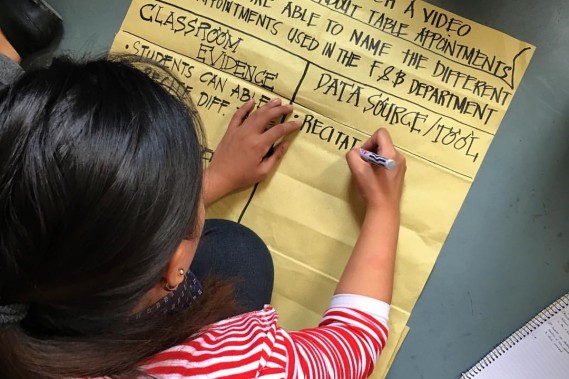 CH A VIDEO
ABOUT TABLE APPOINTMENTS
ARE ABLE TO NAME THE DIFFERENT
APPOINTMENTS USED IN THE F&B DEPARTMENT
CLASSROOM
EVIDENCE
• STUDENTS CAN ABLE
DIFF.
DATA SOURCE/TOOL
• RECITAT